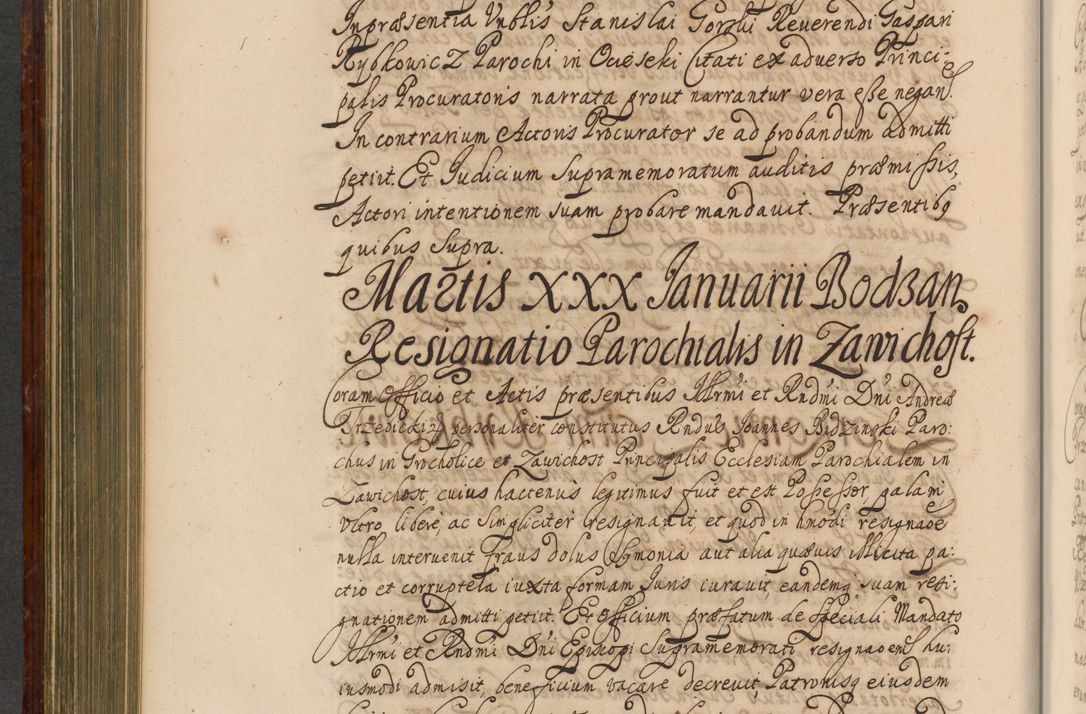 Inpræsentia Nublis Stanislai Gorski Reverendi Gaspari
Rybkowicz Parochi in Ocieseki Citati ex adverso Princi-
palis Procuratoris narrata prout narrantur vera esse negan̄.
In contrarium Actoris Procurator se ad probandum admitti
petiit. Et Judicium Supramemoratum auditis præmissis,
Actori intentionem suam probare mandavit. Præsentibq
quibus Supra.
Martis XXX Januarii Bodzan.
Resignatio Parochialis in Zawichost.
Coram Officio et Actis præsentibus Illrmi et Rndmi Dni Andreæ
Trzebicki personaliter constitutus Rndus Joannes Budzinski Paro:
chus in Grocholice et Zawichost Principalis Ecclesiam Parochialem in
Zawichost, cuius hactenus legitimus fuit et est Possessor, palam
vltro, libere, ac Simpliciter resignavit, et quod in hmodi resignaoē
nulla intervenit fraus dolus Symonia aut alia quævis illicita pa:
ctio et corruptela iuxta formam Juris iuravit, eandemq suam resi:
gnationem admitti petiit. Et Officium præfatum de speciali Mandato
Illrmi et Rndmi Dni Episcopi Supramemorati resignaoem hu:
iusmodi admisit, beneficium vacare decrevit, Patronisq eiusdem